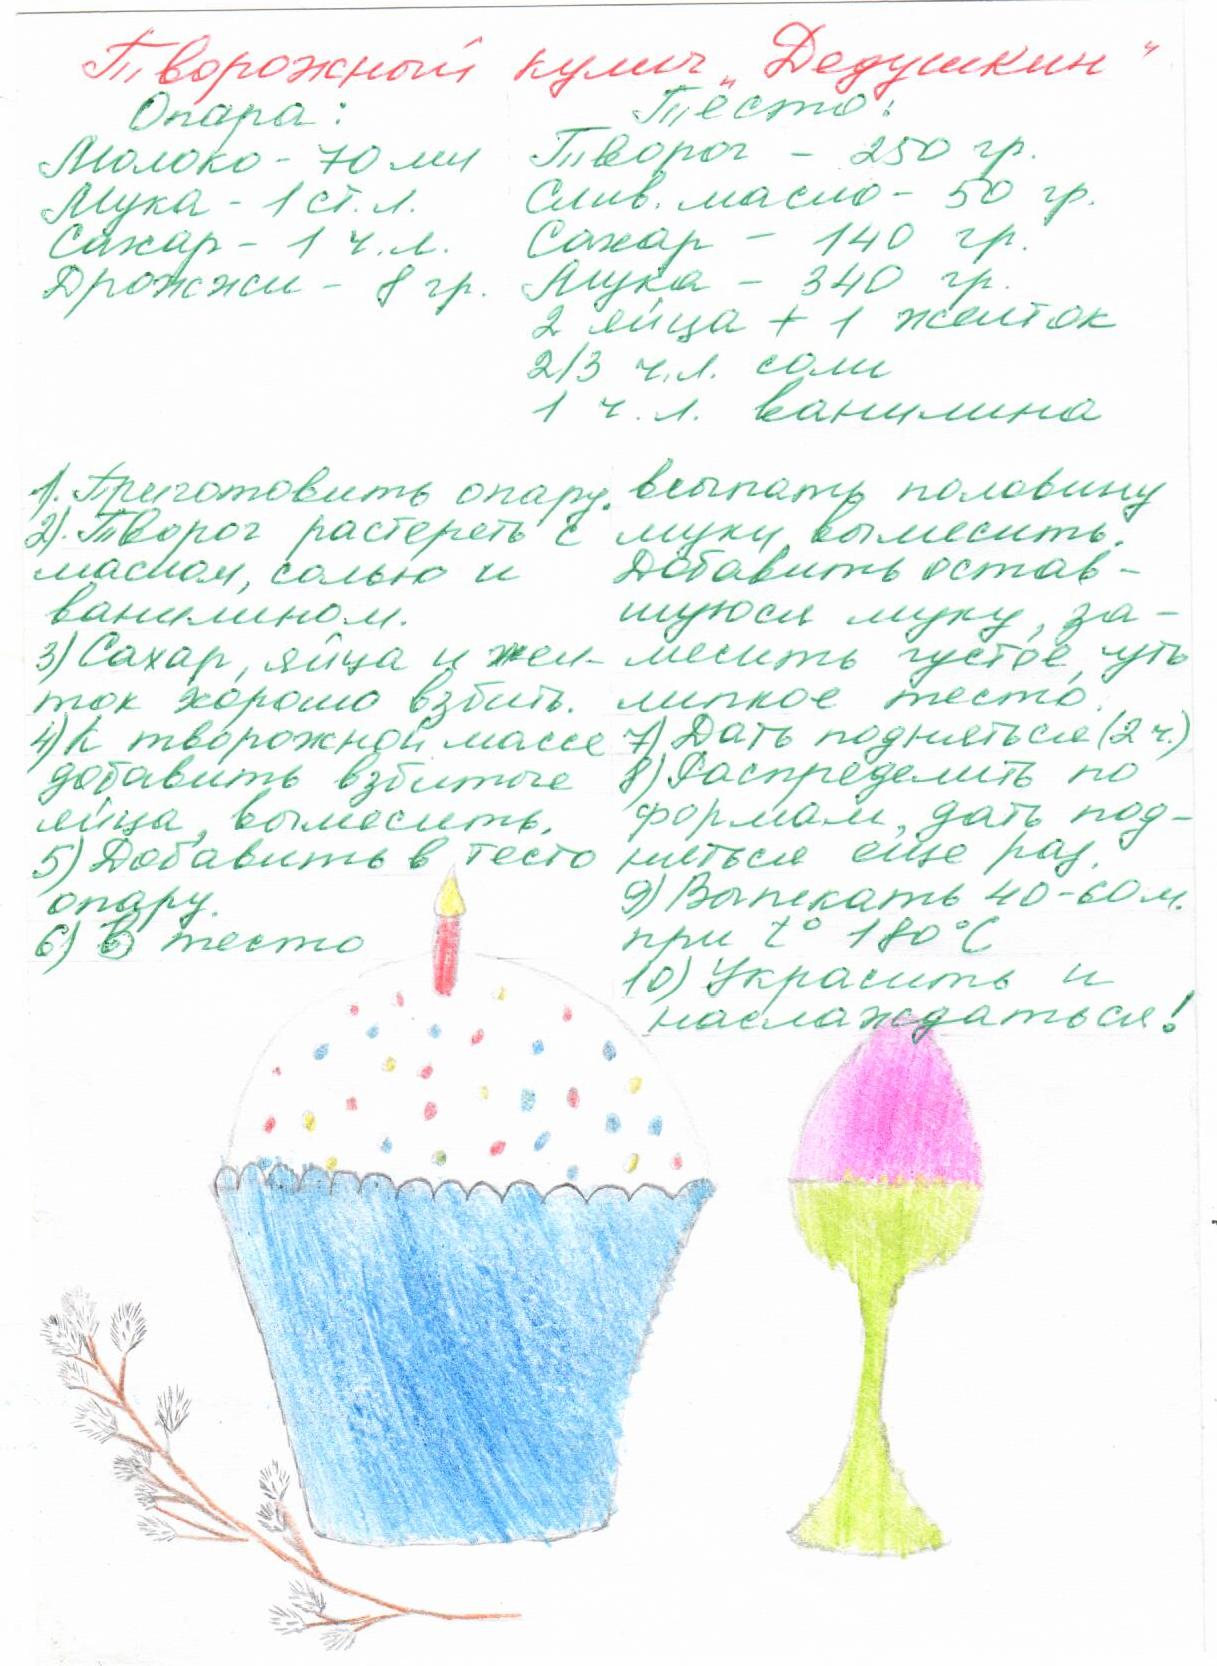 Творожный кулич „Дедушкин"
Опара:
Молоко - 70 мл
Мука - 1 ст. л.
Сахар - 1 ч. л.
Дрожжи - 8 гр.
Тесто:
Творог - 250 гр.
Слив. масло - 50 гр.
Сахар - 140 гр.
Мука - 340 гр.
2 яйца + 1 желток
2/3 ч.л. соли
1 ч. л. ванилина
1). Приготовить опару.
2). Творог растереть с
маслом, солью и
ванилином.
3) Сахар, яйца и жел-
ток хорошо взбить.
4) К творожной массе
добавить взбитые
яйца, вымесить.
5) Добавить в тесто
опару.
6) В тесто
всыпать половину
муки, вымесить.
Добавить остав-
шуюся муку, за-
месить густое, чуть
липкое тесто.
7) Дать подняться (2 ч.)
8) Распределить по
формам, дать под-
няться еще раз.
9) Выпекать 40-60 м.
при t° 180°C
10) Украсить и
наслаждаться!